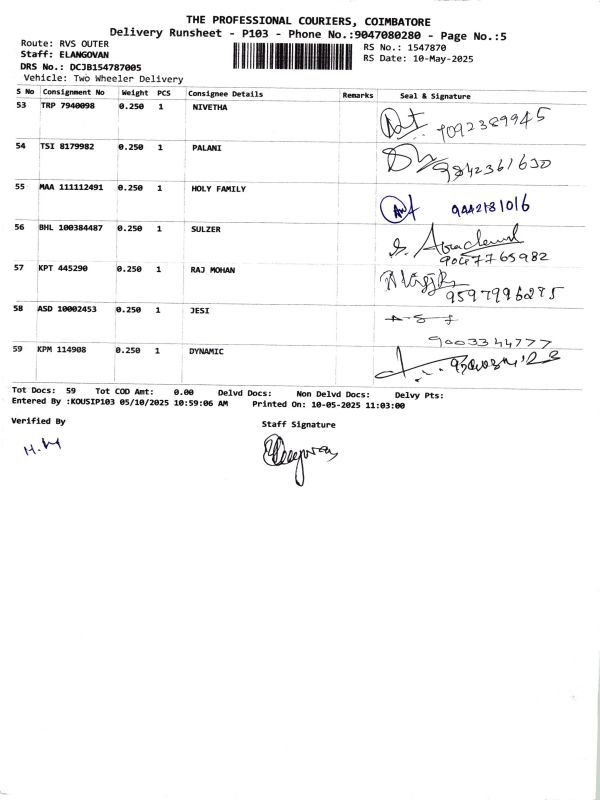 THE PROFESSIONAL COURIERS, COIMBATORE
Delivery Runsheet - P103 - Phone No.:9047080280 - Page No.:5
Route: RVS OUTER
RS No.: 1547870
Staff: ELANGOVAN
RS Date: 10-May-2025
DRS No.: DCJB154787005
Vehicle: Two Wheeler Delivery
S No Consignment No Weight PCS Consignee Details Remarks Seal & Signature
53 TRP 7940098 0.250 1 NIVETHA 9092389945
54 TSI 8179982 0.250 1 PALANI 9842361630
55 MAA 111112491 0.250 1 HOLY FAMILY 9442181016
56 BHL 100384487 0.250 1 SULZER 9047765982
57 KPT 445290 0.250 1 RAJ MOHAN 9597996275
58 ASD 10002453 0.250 1 JESI
9003344777
59 KPM 114908 0.250 1 DYNAMIC
Tot Docs: 59 Tot COD Amt: 0.00 Delvd Docs: Non Delvd Docs: Delvy Pts:
Entered By :KOUSIP103 05/10/2025 10:59:06 AM Printed On: 10-05-2025 11:03:00
Verified By
Staff Signature